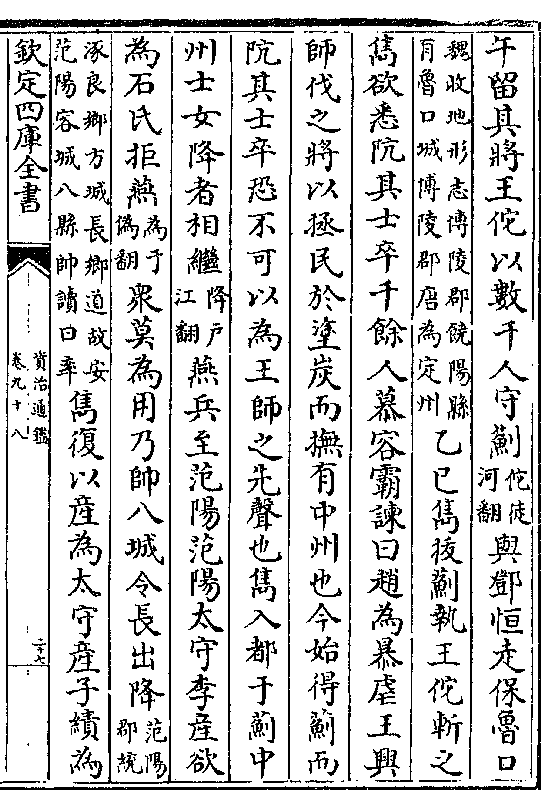 午留其將王佗以數千人守薊佗徒河翻與鄧恒走保魯口
魏收地形志博陵郡饒陽縣有魯口城博陵郡唐為定州乙巳雋拔薊執王佗斬之
雋欲悉阬其士卒千餘人慕容霸諫曰趙為暴虐王興
師伐之將以拯民於塗炭而撫有中州也今始得薊而
阬其士卒恐不可以為王師之先聲也雋入都于薊中
州士女降者相繼降戶江翻燕兵至范陽范陽太守李產欲
為石氏拒燕為于偽翻衆莫為用乃帥八城令長出降范陽郡統
涿良鄉方城長鄉道故安范陽容城八縣帥讀曰率雋復以產為太守產子績為
欽定四庫全書
資治通鑑
卷九十八
二十七